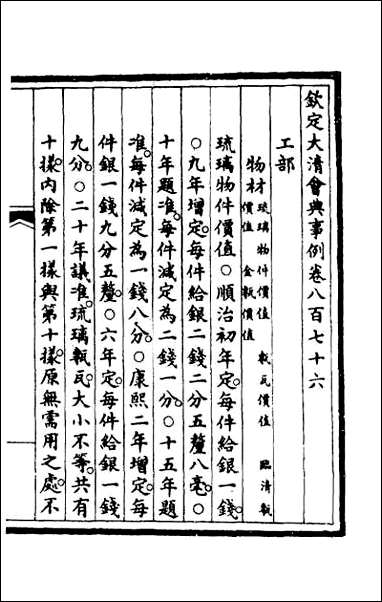 欽定大清會典事例卷八百七十六
工部
物材琉璃物件價值 甎瓦價值 臨清甎
價值 金甎價值
琉璃物件價值○順治初年定每件給銀一錢
○九年增定每件給銀二錢二分五釐八毫○
十年題准每件減定為二錢一分○十五年題
准每件減定為一錢八分○康熙二年增定每
件銀一錢九分五釐○六年定每件給銀一錢
九分○二十年議准琉璃甎瓦大小不等共有
十樣內除第一樣與第十樣原無需用之處不